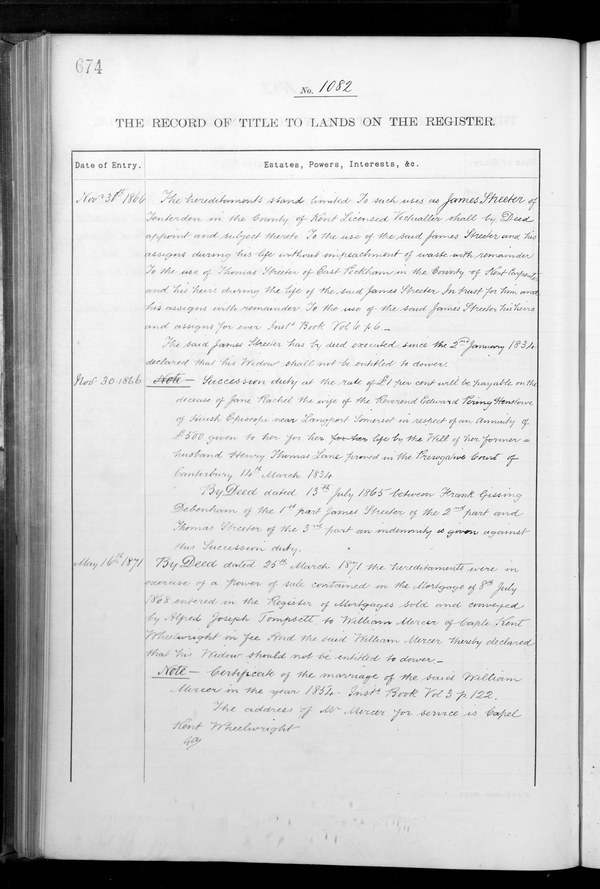 674
No. 1082
THE RECORD OF TITLE TO LANDS ON THE REGISTER.
Date of Entry.
Estates, Powers, Interests, &c.
Novr 30th 1866
The hereditaments stand limited To such uses as James Streeter of
Tenterden in the County of Kent Licensed Victualler shall by Deed
appoint and subject thereto To the use of the said James Streeter and his
assigns during his life without impeachment of waste with remainder
To the use of Thomas Streeter of East Peckham in the County of Kent Carpenter
and his heirs during the life of the said James Streeter In trust for him and
his assigns with remainder To the use of the said James Streeter his heirs
and assigns for ever Insts Book Vol 6 p 6 –
The said James Streeter has by deed executed since the 2nd January 1834
declared that his Widow shall not be entitled to dower.
Novr 30 1866
Note – Succession duty at the rate of £1 per cent will be payable on the
decease of Jane Rachel the wife of the Reverend Edward Pering Henslowe
of Huish Episcopi near Langport Somerset in respect of an Annuity of
£500 given to her for her for her life by the Will of her former
husband Henry Thomas Lane proved in the Prerogative Court of
Canterbury 14th March 1834
By Deed dated 13th July 1865 between Frank Gissing
Debenham of the 1st part James Streeter of the 2nd part and
Thomas Streeter of the 3rd part an indemnity is given against
this Succession duty.
May 16th 1871
By Deed dated 25th March 1871 the hereditaments were in
exercise of a Power of sale contained in the Mortgage of 8th July
1868 entered in the Register of Mortgages sold and conveyed
by Alfred Joseph Tompsett to William Mercer of Caple Kent
Wheelwright in fee And the said William Mercer thereby declared
that his Widow should not be entitled to dower –
Note – Certificate of the marriage of the said William
Mercer in the year 1854. Insts Book Vol 3 p. 122.
The address of Mr Mercer for service is Capel
Kent Wheelwright